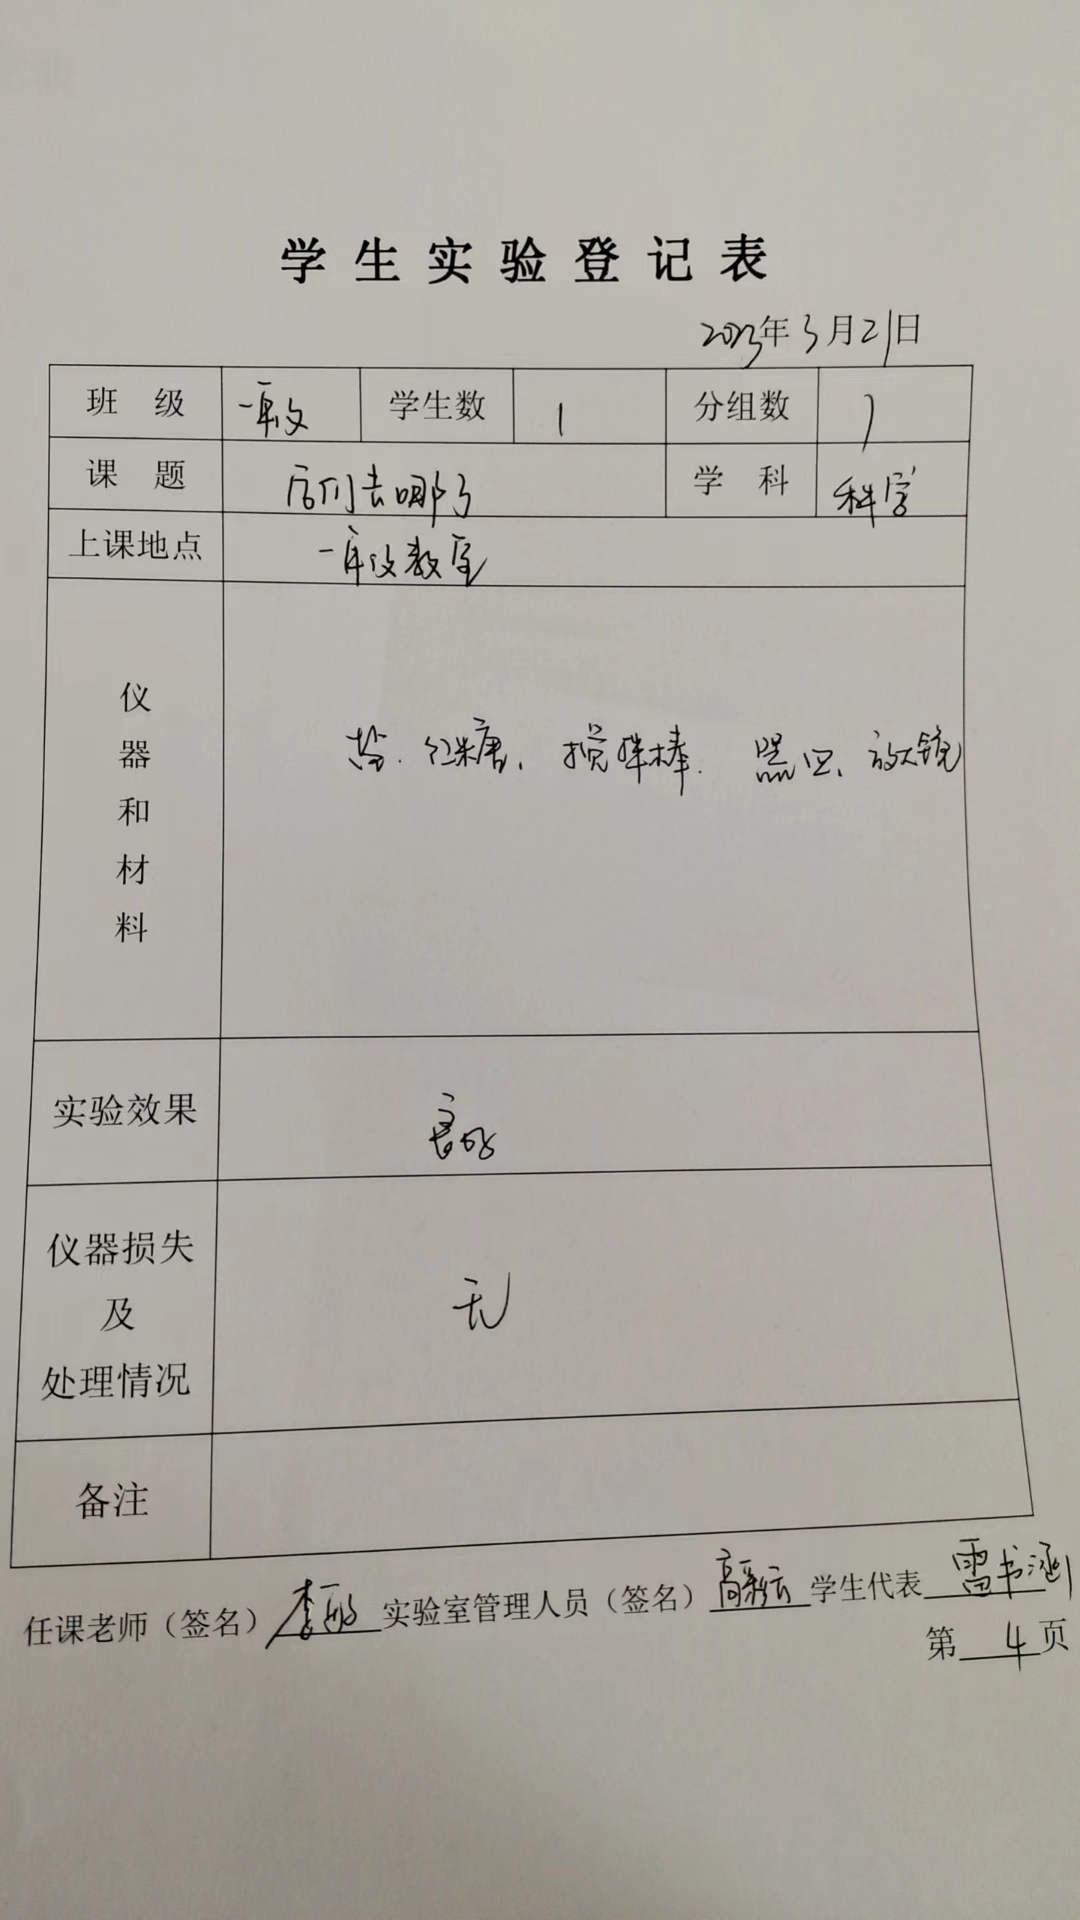 学生实验登记表
2023年3月21日
班级 一年级 学生数 1 分组数 1
课题 它们去哪了 学科 科学
上课地点 一年级教室
仪器和材料 盐、红糖、搅拌棒、器皿、放大镜
实验效果 良好
仪器损失及处理情况 无
备注
任课老师（签名）李敏 实验室管理人员（签名）高彩云 学生代表 雷书涵
第 4 页